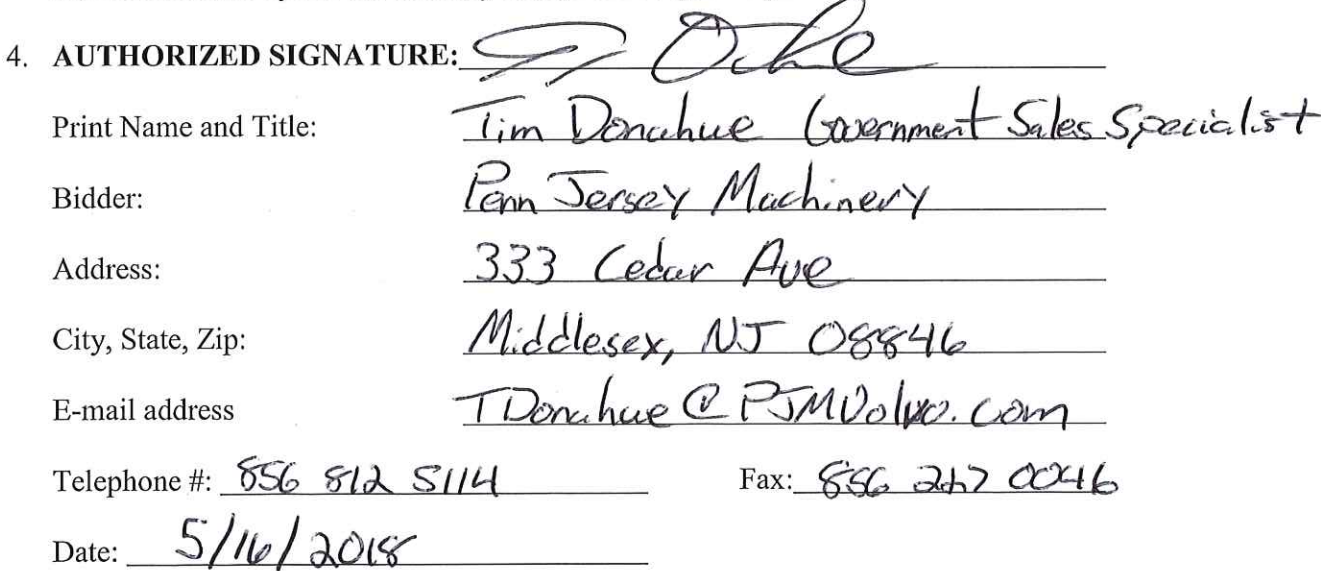 4. AUTHORIZED SIGNATURE:
Print Name and Title: Tim Donahue Government Sales Specialist
Bidder: Penn Jersey Machinery
Address: 333 Cedar Ave
City, State, Zip: Middlesex, NJ 08846
E-mail address TDonahue@PJMVolvo.com
Telephone #: 856 812 5114 Fax: 856 0046
Date: 5/16/2018